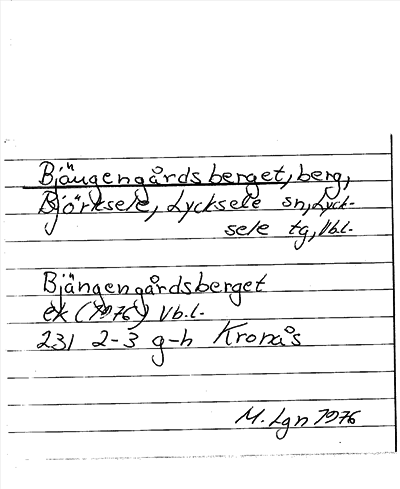 Bjängengårdsberget, berg,
Björksele, Lycksele sn, Lyck-
sele tg, Vb.l.
Bjängengårdsberget
ek (1976) Vb.l.
231 2-3 g-h Kronås
M. Lgn 1976